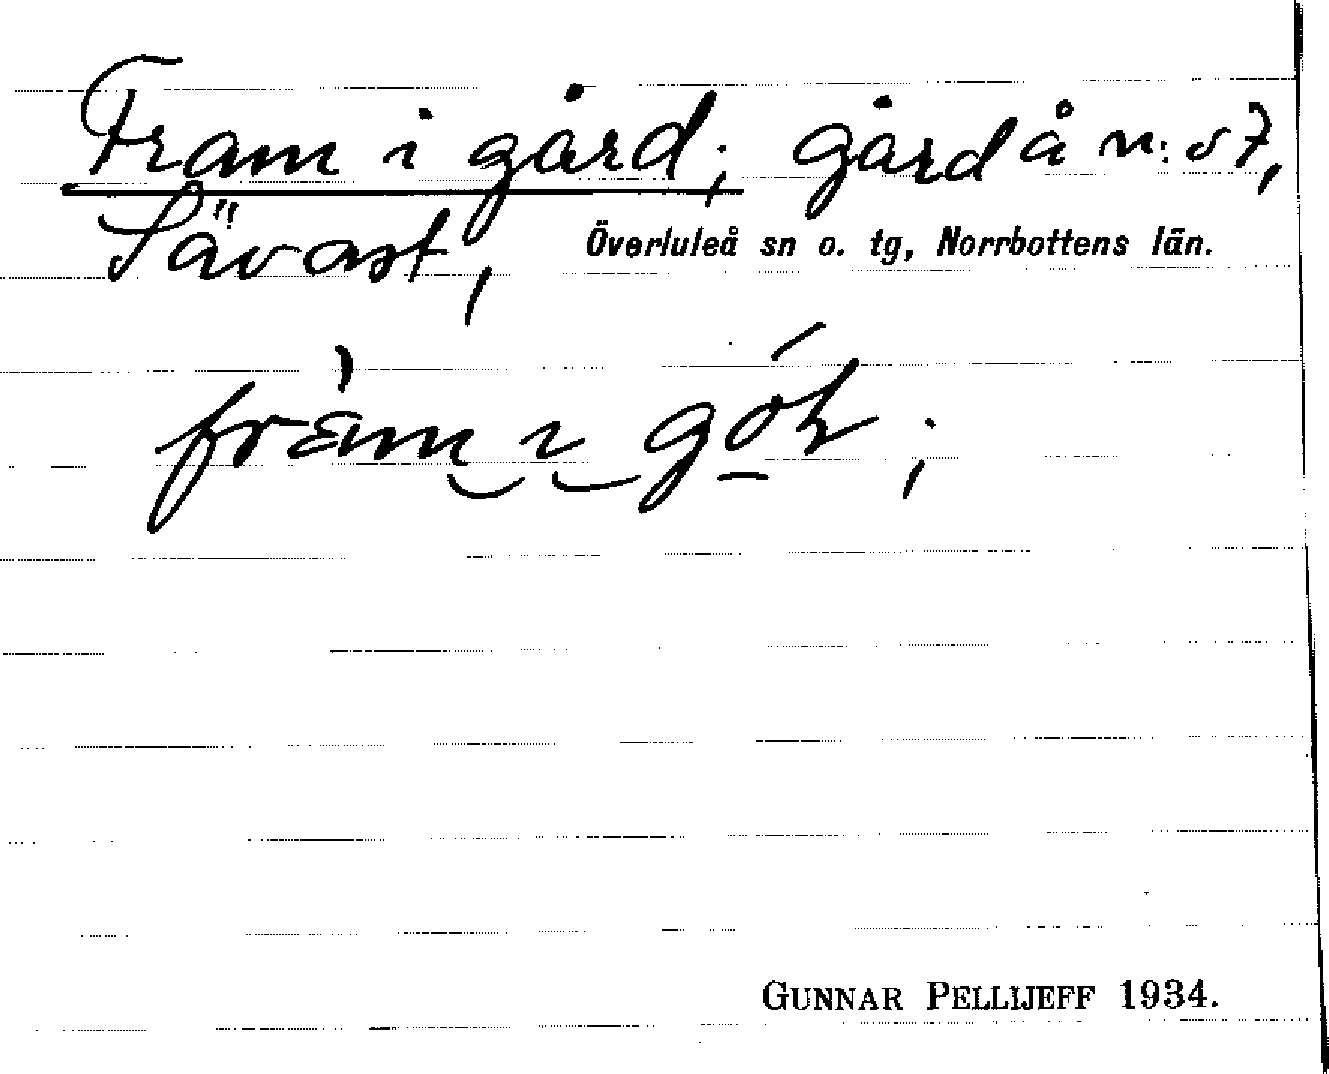 Fram i gård; gård å n:o 7,
Sävast, Överluleå sn o. tg, Norrbottens län.
GUNNAR PELLIJEFF 1934.